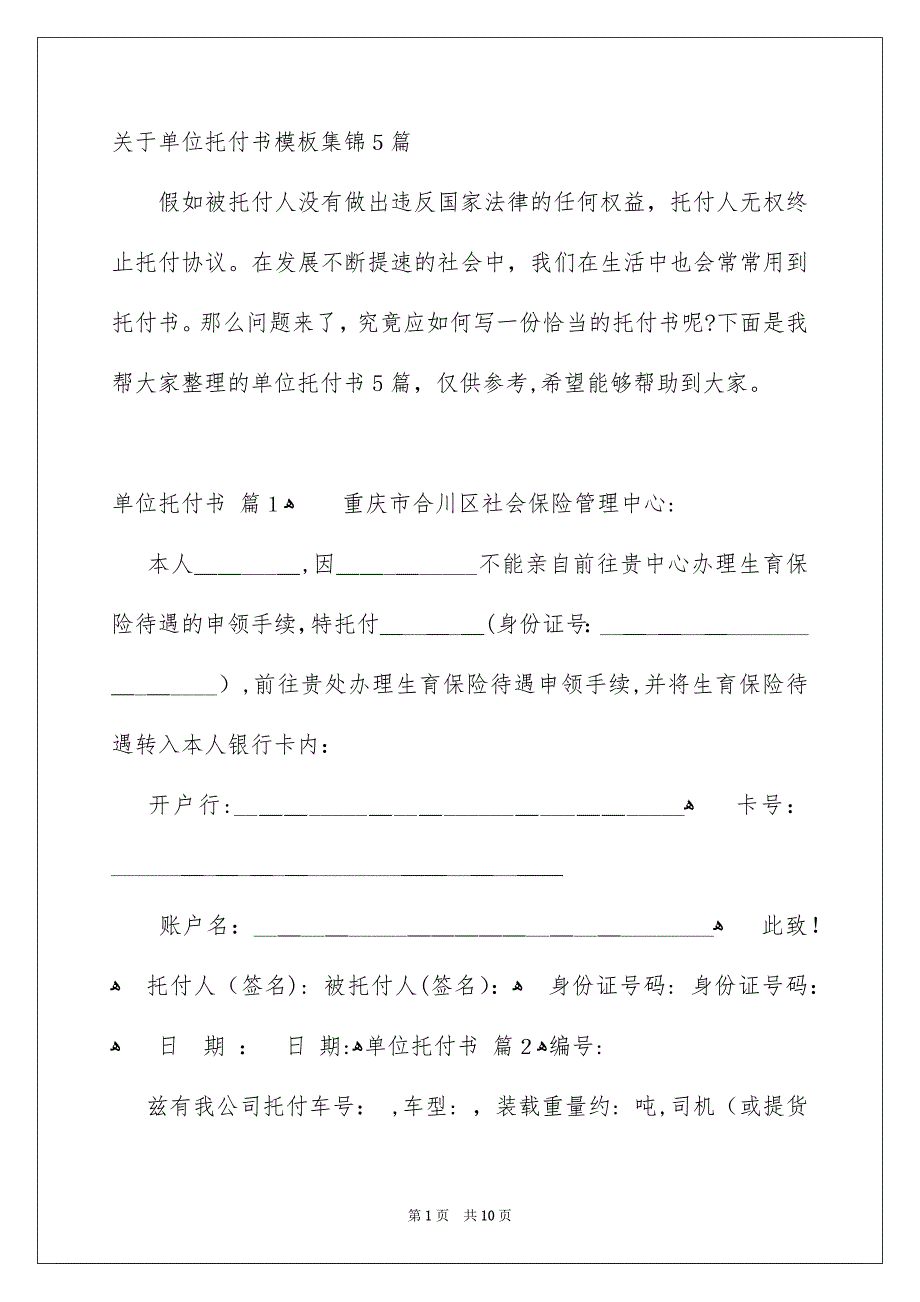 关于单位托付书模板集锦5篇
假如被托付人没有做出违反国家法律的任何权益，托付人无权终
止托付协议。在发展不断提速的社会中，我们在生活中也会常常用到
托付书。那么问题来了，究竟应如何写一份恰当的托付书呢?下面是我
帮大家整理的单位托付书5篇，仅供参考,希望能够帮助到大家。
单位托付书 篇1ﻫ 重庆市合川区社会保险管理中心:
本人_________,因____________不能亲自前往贵中心办理生育保
险待遇的申领手续,特托付_________(身份证号：__________________
_________）,前往贵处办理生育保险待遇申领手续,并将生育保险待
遇转入本人银行卡内：
开户行:______________________________________ﻫ 卡号：
______________________________________
账户名：______________________________________ﻫ 此致！
ﻫ 托付人（签名): 被托付人(签名）：ﻫ 身份证号码: 身份证号码：
ﻫ 日 期： 日 期:ﻫ单位托付书 篇2ﻫ编号:
兹有我公司托付车号： ,车型: ，装载重量约: 吨,司机（或提货
第1页 共10页